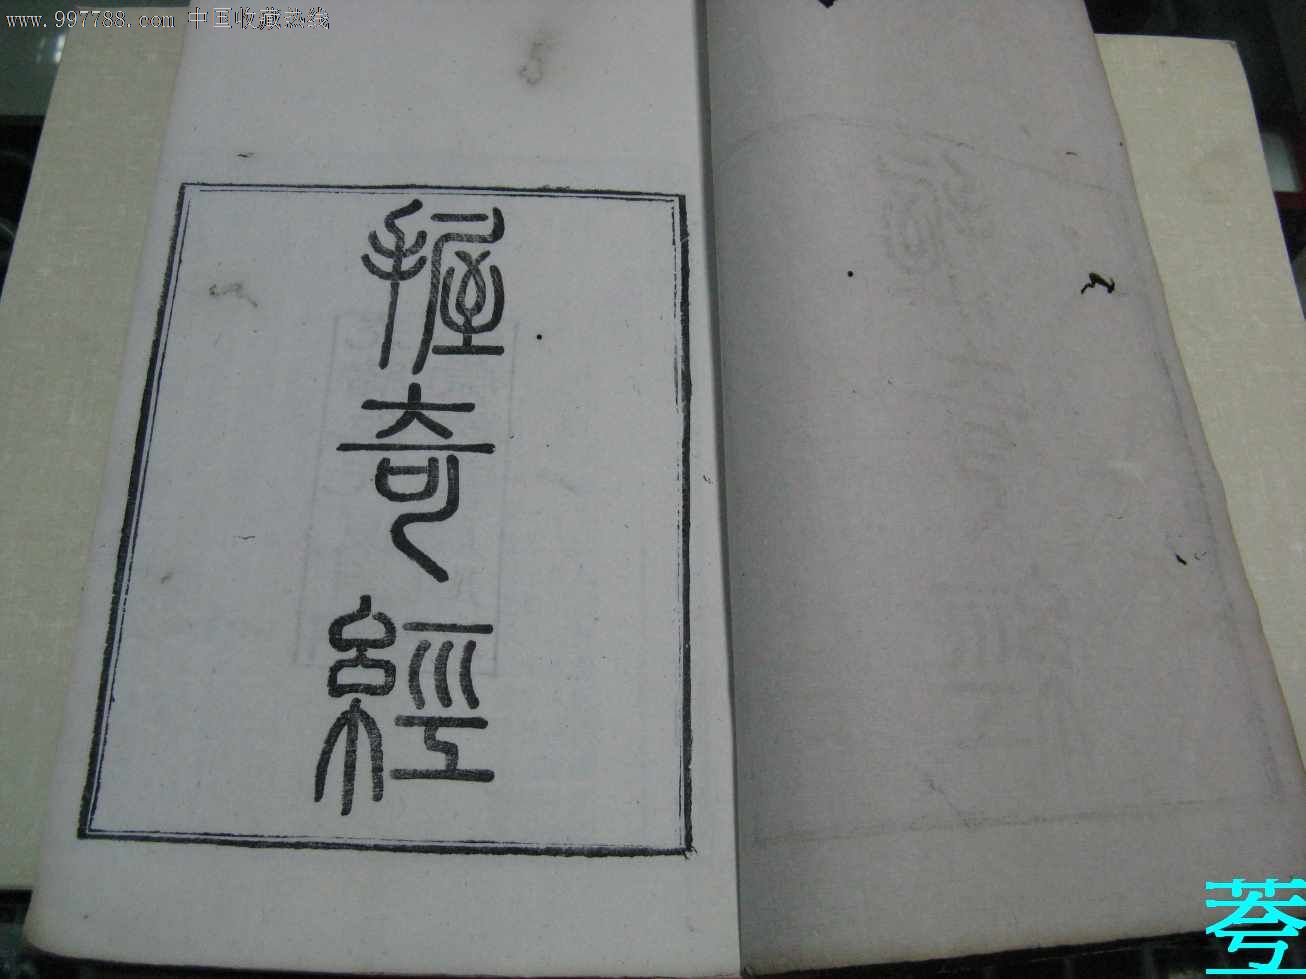 www.997788.com 中国收藏热线
握奇經